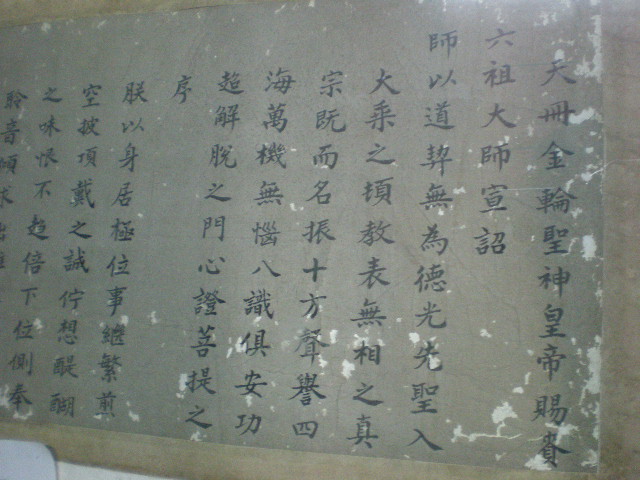 天冊金輪聖神皇帝賜賚
六祖大師宣詔
師以道契無為德光先聖入
大乘之頓教表無相之真
宗既而名振十方聲譽四
海萬機無惱八識俱安功
超解脫之門心證菩提之
序
朕以身居極位事繼繁煎
空披項戴之誠佇想醍醐
之味恨不趋倍下位側奉
聆音傾求